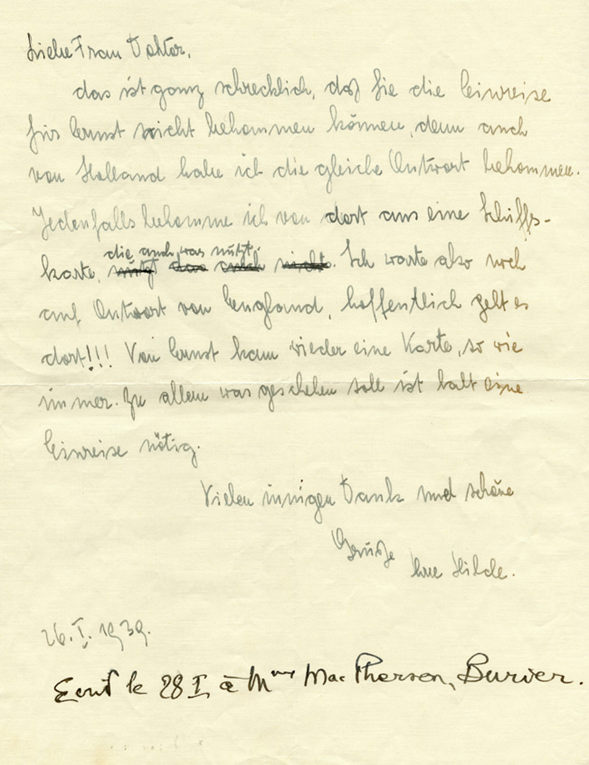 Liebe Frau Doktor,
das ist ganz schrecklich, daß Sie die Einreise
für Ernst nicht bekommen können, denn auch
von Holland habe ich die gleiche Antwort bekommen.
Jedenfalls bekomme ich von dort aus eine Schiffs-
die auch was nützt.
karte, nützt das auch nichts. Ich warte also noch
auf Antwort von England, hoffentlich geht es
dort!!! Von Ernst kam wieder eine Karte, so wie
immer. Zu allem was geschehen soll ist halt eine
Einreise nötig.
Vielen innigen Dank und schöne
Grüße
Ihre Hilde.
26.I.1939.
Ecrit le 28 I à Mme Mac Pherson,